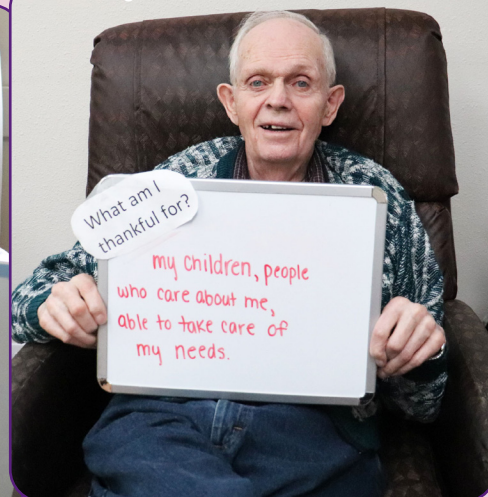 What am I
thankful for?
my children, people
who care about me,
able to take care of
my needs.